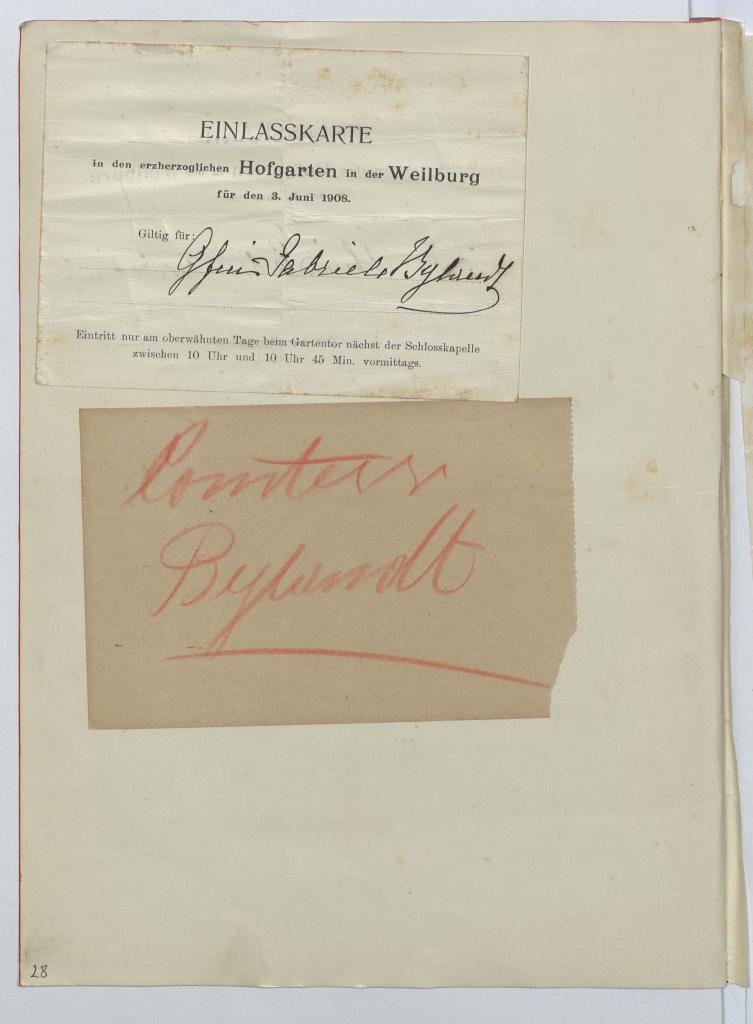 EINLASSKARTE
in den erzherzoglichen Hofgarten in der Weilburg
für den 3. Juni 1908.
Giltig für: Gfin Gabriele Bylandt
Eintritt nur am oberwähnten Tage beim Gartentor nächst der Schlosskapelle
zwischen 10 Uhr und 10 Uhr 45 Min. vormittags.
Comtess
Bylandt
28